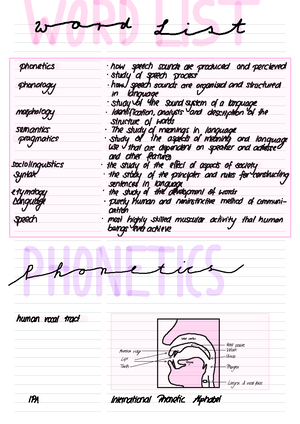 WORD LIST
Word List
phonetics · how speech sounds are produced and percieved
· study of speech process
phonology · how speech sounds are organised and structured
in language
· study of the sound system of a language
morphology · identification, analysis and description of the
structure of words
semantics · The study of meanings in language
pragmatics · study of the aspects of meaning and language
use that are dependent on speaker and address
and other features
sociolinguistics · the study of the effect of aspects of society
syntax · the study of the principles and rules for constructing
sentences in language
etymology · the study of the development of words
Language · purely human and noninstinctive method of communi-
cation
Speech · most highly skilled muscular activity that human
beings achieve
PHONETICS
Phonetics
human vocal tract
Lips
Teeth
Velum
Uvula
Pharynx
Larynx & vocal folds
IPA International Phonetic Alphabet